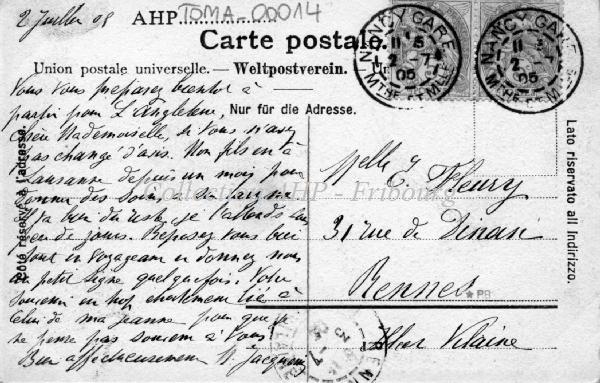 2 Juillet 05
AHP TDMA-00014
Carte postale.
Union postale universelle. — Weltpostverein.
Nur für die Adresse.
Côté réservé à l'adresse.
Lato riservato all Indirizzo.
NANCY GARE
11 5
2 -7
05
MTHE ET MLLE
NANCY GARE
11 5
2 -7
05
Vous vous préparez bientôt à
partir pour L'Angleterre,
Chère Mademoiselle, si Vous n'avez
pas changé d'avis. Mon fils est à
Lausanne depuis un mois pour
donner des soins à sa
Il va bien du reste, je l'attends
peu de jours. Reposez vous bien
tout en voyageant et donnez nous
un petit signe quelquefois. Votre
souvenir est trop lié à
celui de ma Jeanne pour que je
ne pense pas souvent à Vous!
Bien affectueusement
Collection AHP - Fribourg
Melle E. Fleury
31 rue de Dinan
Rennes
PR
Ille et Vilaine